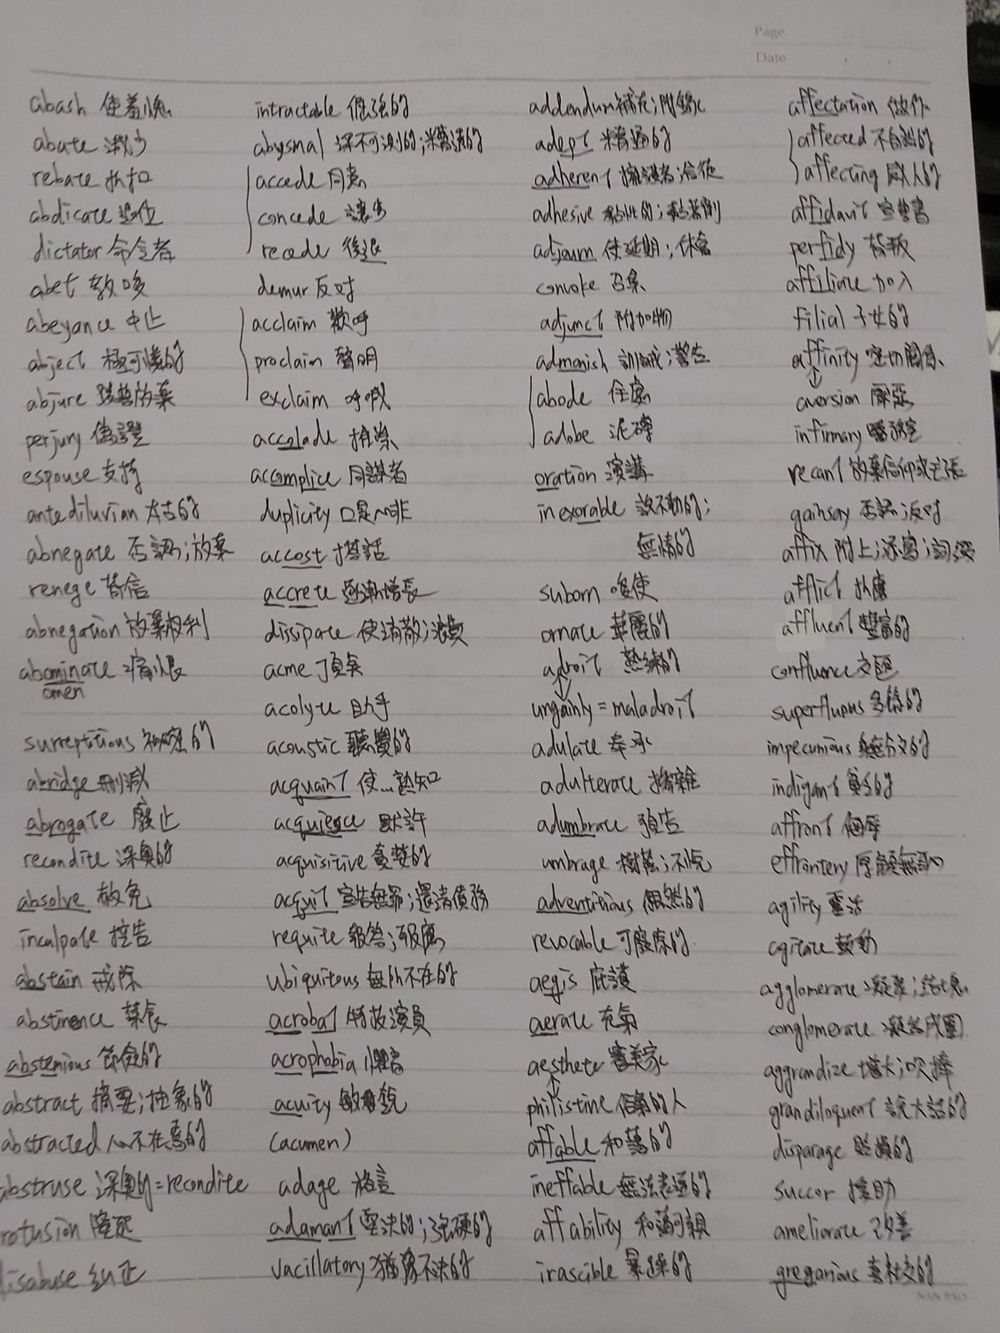 Page
Date
abash 使羞愧
abate 減少
rebate 折扣
abdicate 退位
dictator 命令者
abet 教唆
abeyance 中止
abject 極可憐的
abjure 發誓放棄
perjury 偽證
espouse 支持
antediluvian 太古的
abnegate 否認;放棄
renege 背信
abnegation 放棄權利
abominate 痛恨
omen
surreptitious 秘密的
abridge 刪減
abrogate 廢止
recondite 深奧的
absolve 赦免
inculpate 控告
abstain 戒除
abstinence 禁食
abstemious 節儉的
abstract 摘要;抽象的
abstracted 心不在焉的
abstruse 深奧的=recondite
disabuse 糾正
intractable 倔強的
abysmal 深不可測的;糟透的
accede 同意
concede 讓步
recede 後退
demur 反對
acclaim 歡呼
proclaim 聲明
exclaim 呼喊
accolade
accomplice 同謀者
duplicity 口是心非
accost 搭話
accrete 逐漸增長
dissipate 使消散;浪費
acme 頂點
acolyte 助手
acoustic 聽覺的
acquaint 使…熟知
acquiesce 默許
acquisitive 貪婪的
acquit 宣告無罪;還清債務
requite 報答;報應
ubiquitous 無所不在的
acrobat 特技演員
acrophobia 懼高
acuity 敏銳
(acumen)
adage 格言
adamant 堅決的;強硬的
vacillatory 猶豫不決的
addendum 補充;附錄
adept 精通的
adherent 擁護者
adhesive 黏性的;黏著劑
adjourn 使延期;休會
convoke 召集
adjunct 附加物
admonish 訓誡;警告
abode 住處
adobe 泥磚
oration 演講
inexorable 說不動的;
無情的
suborn 唆使
ornate 華麗的
adroit 熟練的
ungainly = maladroit
adulate 奉承
adulterate 摻雜
adumbrate 預告
umbrage 樹蔭;不悅
adventitious 偶然的
revocable 可廢除的
aegis 庇護
aerate 充氣
aesthete 審美家
philistine 俗氣的人
affable 和藹的
ineffable 無法表達的
affability 和藹可親
irascible 暴躁的
affectation 做作
affected 不自然的
affecting 感人的
affidavit 宣誓書
perfidy 背叛
affiliate 加入
filial 子女的
affinity 密切關係
aversion 厭惡
infirmary 醫務室
recant 放棄信仰或主張
gainsay 否認;反對
affix 附上;添寫;詞綴
afflict 折磨
affluent 豐富的
confluence 交匯
superfluous 多餘的
impecunious 無分文的
indigent 貧窮的
affront 侮辱
effrontery 厚顏無恥
agility 靈活
agitate 鼓動
agglomerate 凝聚;結塊
conglomerate 凝結成團
aggrandize 增大;吹捧
grandiloquent 說大話的
disparage 貶損的
succor 援助
ameliorate 改善
gregarious 喜社交的
NAN PAO